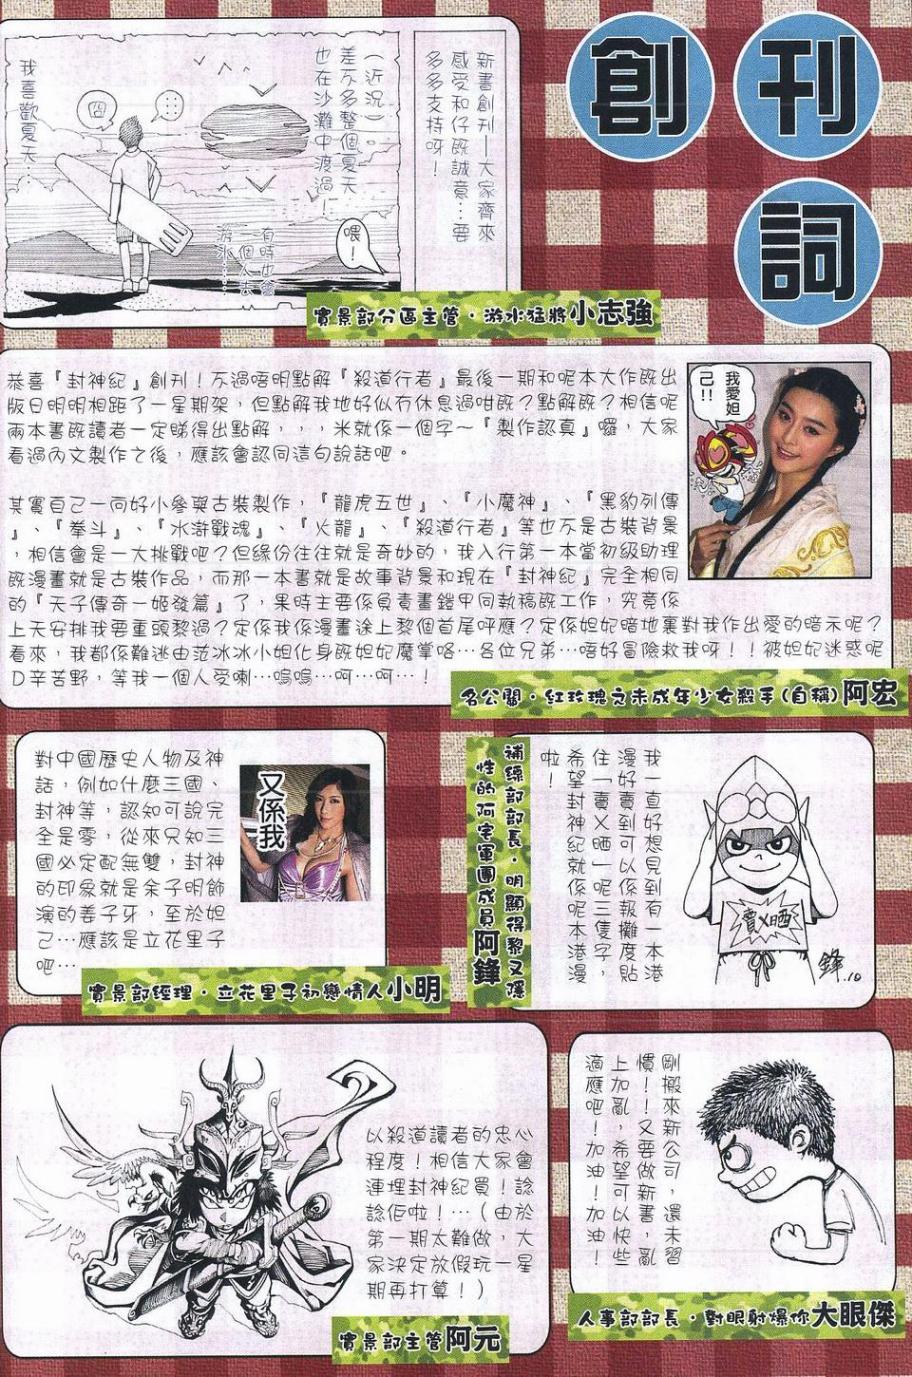 創刊詞
新書創刊—大家齊來
感受和仔既誠意…要
多多支持呀！
（近況）
差不多整個夏天
也在沙灘中渡過！
喂！
有時也會
一個人去
游水……
囧
我喜歡夏天…
實景部分區主管·游水猛將小志強
恭喜『封神紀』創刊！不過唔明點解『殺道行者』最後一期和呢本大作既出
版日明明相距了一星期架，但點解我地好似冇休息過咁既？點解既？相信呢
兩本書既讀者一定睇得出點解，，，米就係一個字～『製作認真』囉，大家
看過內文製作之後，應該會認同這句說話吧。
其實自己一向好小參與古裝製作，『龍虎五世』、『小魔神』、『黑豹列傳
』、『拳斗』、『水滸戰魂』、『火龍』、『殺道行者』等也不是古裝背景
，相信會是一大挑戰吧？但緣份往往就是奇妙的，我入行第一本當初級助理
既漫畫就是古裝作品，而那一本書就是故事背景和現在『封神紀』完全相同
的『天子傳奇一姬發篇』了，果時主要係負責畫鎧甲同執稿既工作，究竟係
上天安排我要重頭黎過？定係我係漫畫途上黎個首尾呼應？定係妲妃暗地裏對我作出愛的暗示呢？
看來，我都係難逃由范冰冰小姐化身既妲妃魔掌咯…各位兄弟…唔好冒險救我呀！！被妲妃迷惑呢
D辛苦野，等我一個人受喇…嗚嗚…呵…呵…！
我愛妲
己！！
名公關·紅玫瑰之未成年少女殺手(自稱)阿宏
對中國歷史人物及神
話，例如什麼三國、
封神等，認知可說完
全是零，從來只知三
國必定配無雙，封神
的印象就是余子明飾
演的姜子牙，至於妲
己…應該是立花里子
吧…
又係我
實景部經理·立花里子初戀情人小明
我一直好想見到有一本港
漫好賣到可以係報攤度貼
住「賣乂晒」呢三隻字，
希望封神紀就係呢本港漫
啦！
賣乂晒
鋒.10
補線部部長·明顯得黎又隱
性的阿宅軍團成員阿鋒
以殺道讀者的忠心
程度！相信大家會
連埋封神紀買！諗
諗佢啦！…（由於
第一期太難做，大
家決定放假玩一星
期再打算！）
實景部主管阿元
剛搬來新公司，還未習
慣！！又要做新書，亂
上加亂，希望可以快些
適應吧！加油！加油！
人事部部長·對眼射爆你大眼傑